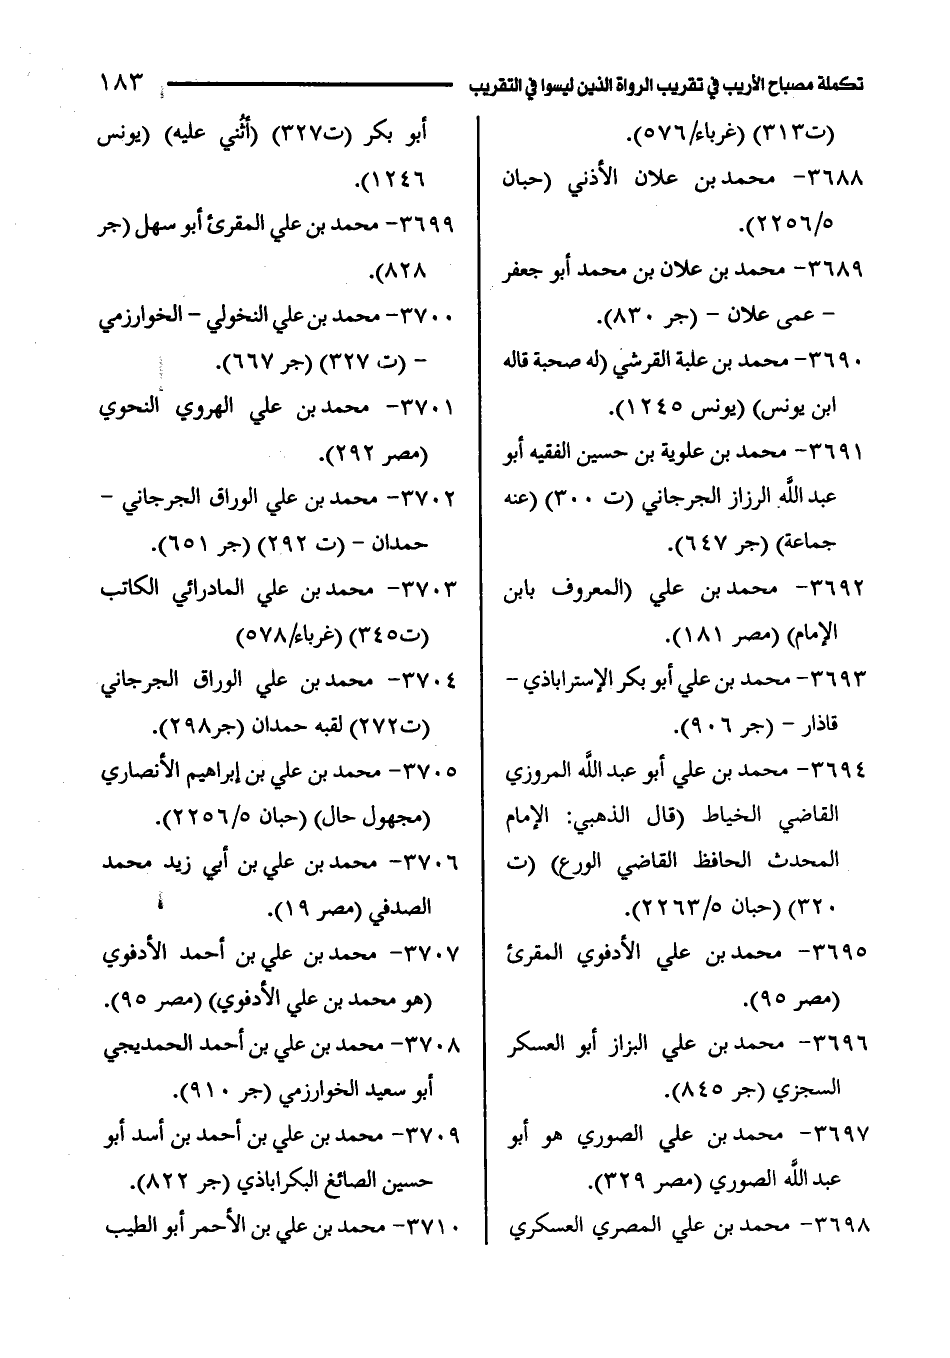 تكملة مصباح الأريب في تقريب الرواة الذين ليسوا في التقريب ١٨٣
(ت٣١٣) (غرباء/٥٧٦).
٣٦٨٨- محمد بن علان الأذني (حبان
٢٢٥٦/٥).
٣٦٨٩- محمد بن علان بن محمد أبو جعفر
- عمى علان - (جر ٨٣٠).
٣٦٩٠- محمد بن علبة القرشي (له صحبة قاله
ابن يونس) (يونس ١٢٤٥).
٣٦٩١- محمد بن علوية بن حسين الفقيه أبو
عبد اللَّه الرزاز الجرجاني (ت ٣٠٠) (عنه
جماعة) (جر ٦٤٧).
٣٦٩٢- محمد بن علي (المعروف بابن
الإمام) (مصر ١٨١).
٣٦٩٣- محمد بن علي أبو بكر الإستراباذي -
قاذار - (جر ٩٠٦).
٣٦٩٤- محمد بن علي أبو عبد اللَّه المروزي
القاضي الخياط (قال الذهبي: الإمام
المحدث الحافظ القاضي الورع) (ت
٣٢٠) (حبان ٢٢٦٣/٥).
٣٦٩٥- محمد بن علي الأدفوي المقرئ
(مصر ٩٥).
٣٦٩٦- محمد بن علي البزاز أبو العسكر
السجزي (جر ٨٤٥).
٣٦٩٧- محمد بن علي الصوري هو أبو
عبد اللَّه الصوري (مصر ٣٢٩).
٣٦٩٨- محمد بن علي المصري العسكري
أبو بكر (ت٣٢٧) (أُثني عليه) (يونس
١٢٤٦).
٣٦٩٩- محمد بن علي المقرئ أبو سهل (جر
٨٢٨).
٣٧٠٠- محمد بن علي النخولي - الخوارزمي
- (ت ٣٢٧) (جر ٦٦٧).
٣٧٠١- محمد بن علي الهروي النحوي
(مصر ٢٩٢).
٣٧٠٢- محمد بن علي الوراق الجرجاني -
حمدان - (ت ٢٩٢) (جر ٦٥١).
٣٧٠٣- محمد بن علي المادرائي الكاتب
(ت٣٤٥) (غرباء/٥٧٨)
٣٧٠٤- محمد بن علي الوراق الجرجاني
(ت٢٧٢) لقبه حمدان (جر٢٩٨).
٣٧٠٥- محمد بن علي بن إبراهيم الأنصاري
(مجهول حال) (حبان ٢٢٥٦/٥).
٣٧٠٦- محمد بن علي بن أبي زيد محمد
الصدفي (مصر ١٩).
٣٧٠٧- محمد بن علي بن أحمد الأدفوي
(هو محمد بن علي الأدفوي) (مصر ٩٥).
٣٧٠٨- محمد بن علي بن أحمد الحمديجي
أبو سعيد الخوارزمي (جر ٩١٠).
٣٧٠٩- محمد بن علي بن أحمد بن أسد أبو
حسين الصائغ البكراباذي (جر ٨٢٢).
٣٧١٠- محمد بن علي بن الأحمر أبو الطيب